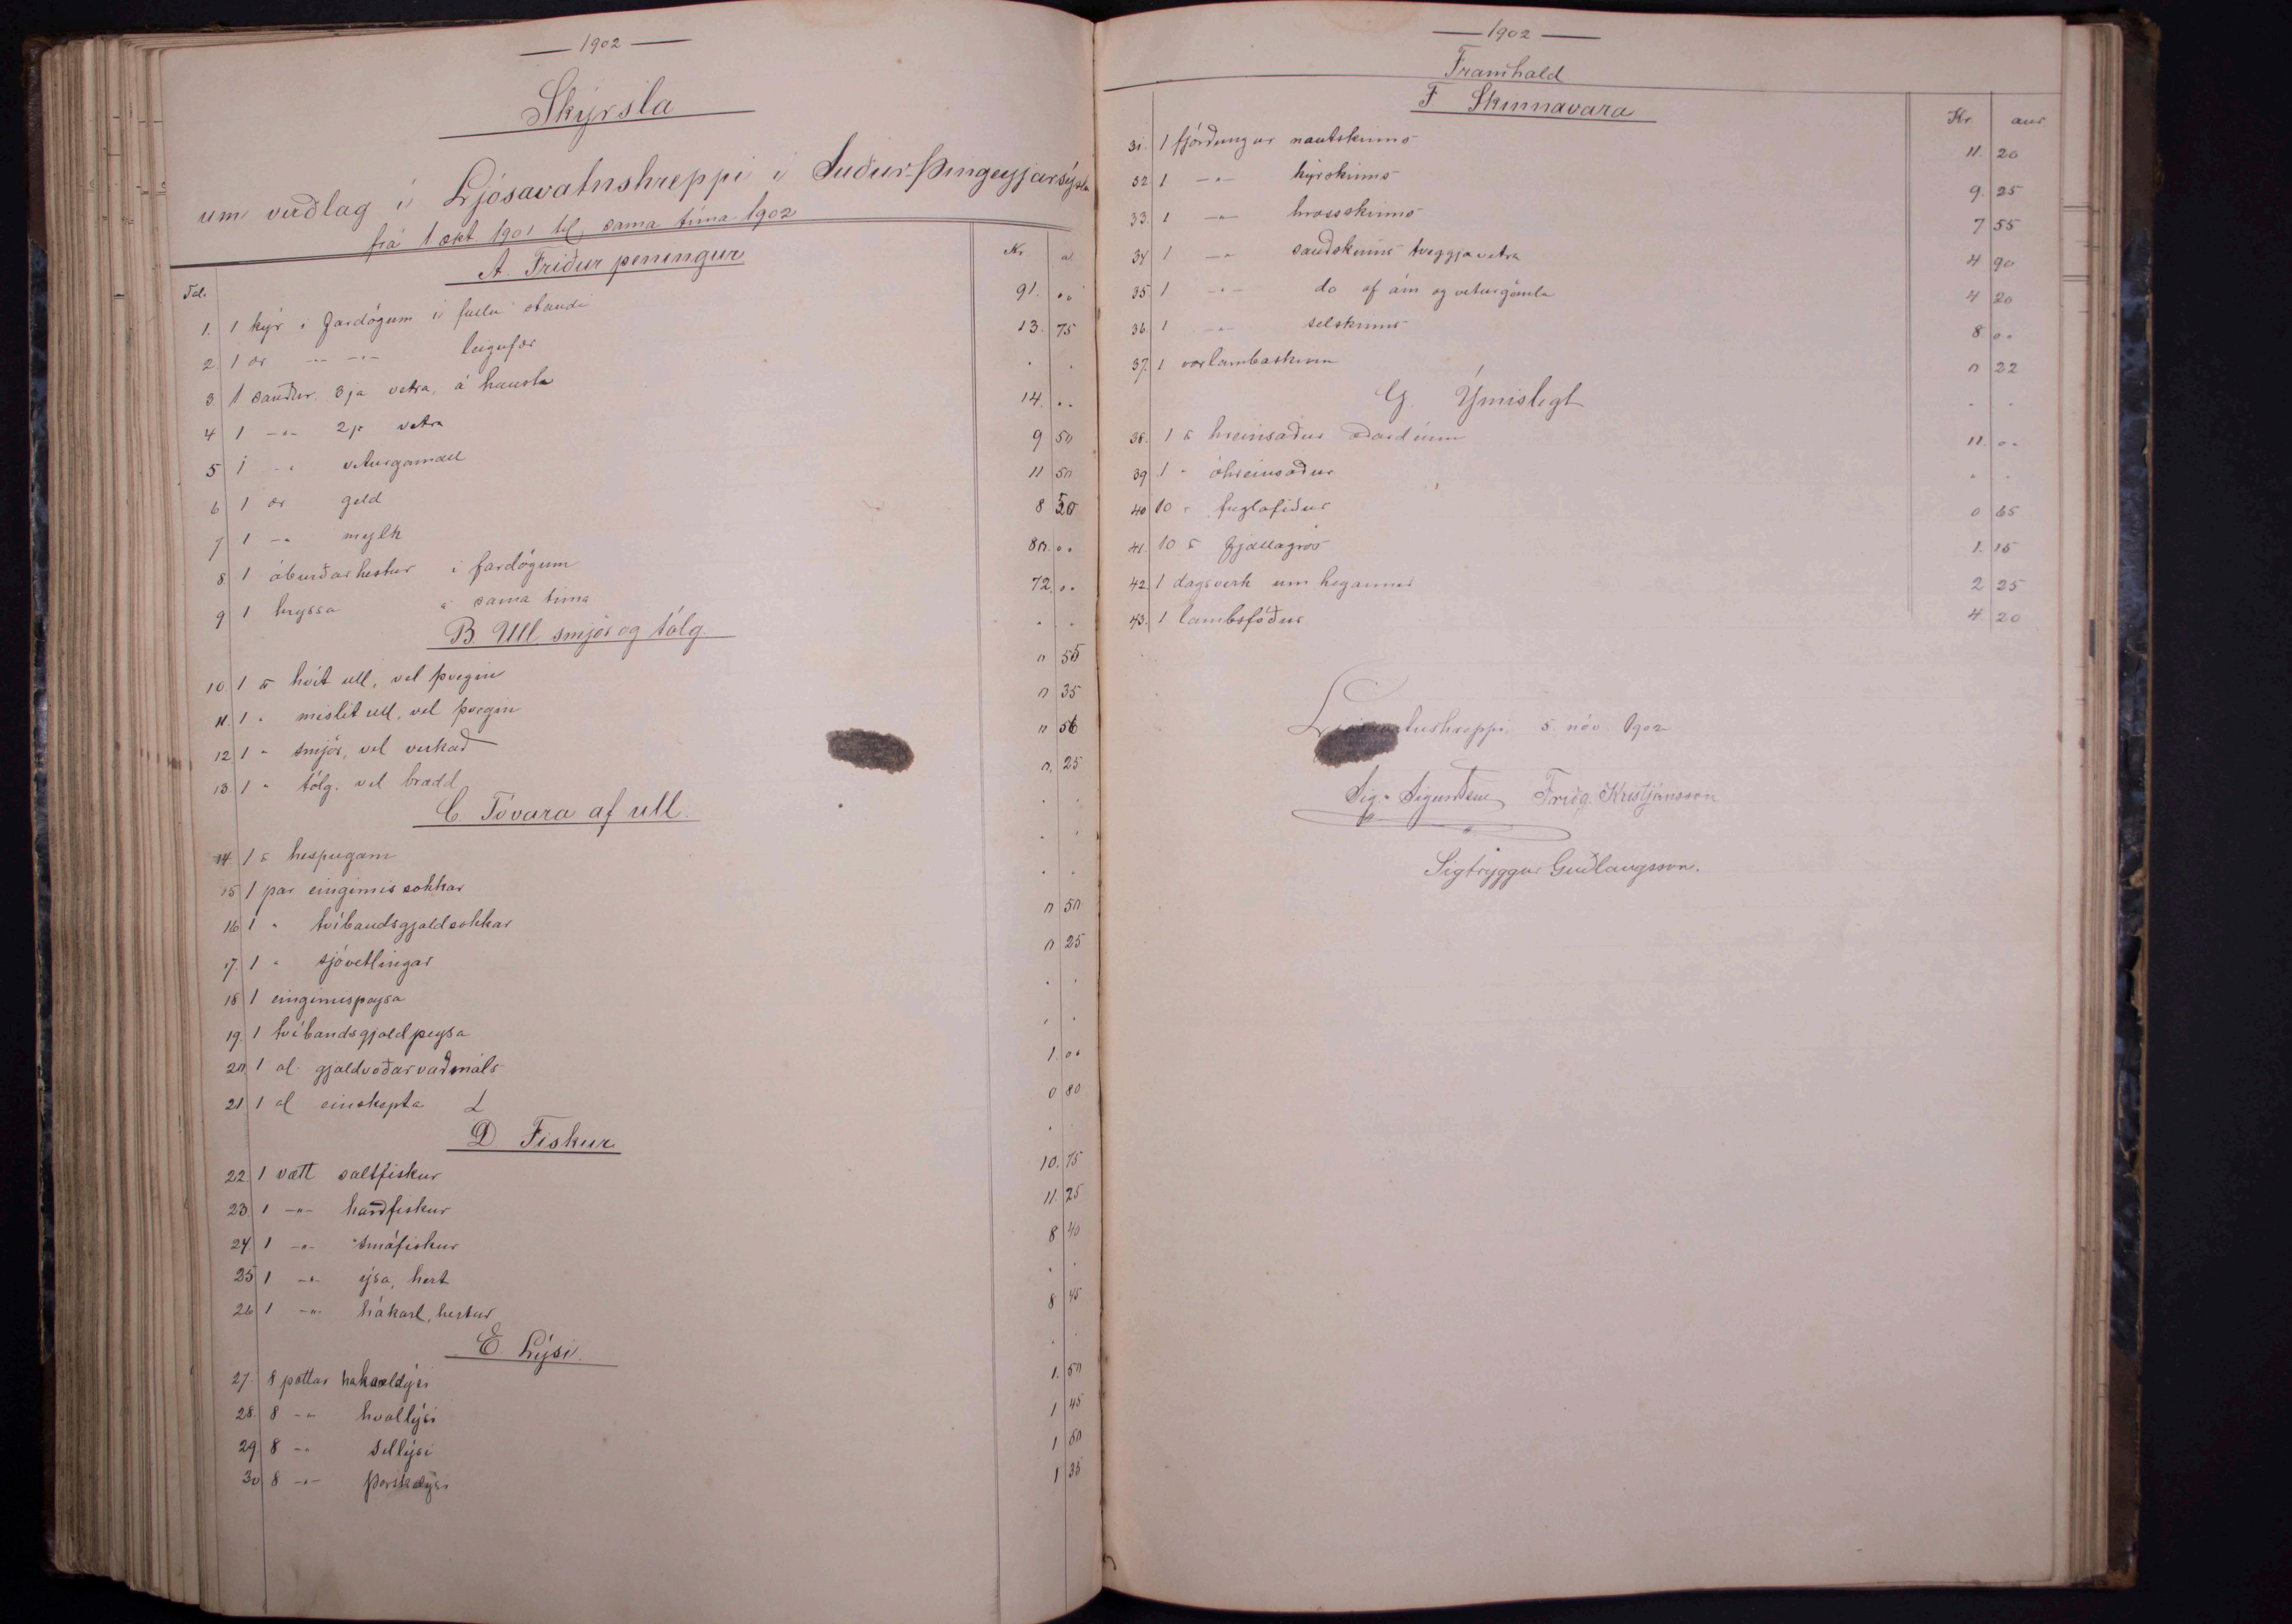 — 1902 —
Skýrsla
um verðlag i Ljósavatnshreppi i Suður-Þingeyjarsýslu
frá 1 okt. 1901 til sama tíma 1902
Tal. A. Friður peningur Kr a.
1. 1 kýr i fardögum i fullu standi 91. ..
2. 1 ær -"- -"- leigufær 13. 75
3. 1 sauður, 3ja vetra, á hausti . .
4 1 -"- 2ja vetra 14. ..
5 1 -"- veturgamall 9 50
6 1 ær geld 11 50
7 1 -"- mylk 8 50
8. 1 áburðarhestur i fardögum 80. ..
9 1 hryssa á sama tíma 72. ..
B. Ull smjör og tólg. . .
10. 1 ℔ hvit ull, vel þvegin 0 55
11. 1 " mislit ull, vel þvegin 0 35
12 1 " smjör, vel verkað 0 56
13 1 " tólg. vel brædd 0. 25
C. Tóvara af ull. . .
14. 1 ℔ hespugarn . .
15 1 par eingirnis sokkar . .
16 1 " tvíbandsgjaldsokkar 0 50
17. 1 " sjóvetlingar 0 25
18 1 eingirnispeysa . .
19. 1 tvíbandsgjaldpeysa . .
20 1 al. gjaldvoðarvaðmáls 1. ..
21. 1 al einskepta 0 80
D Fiskur .
22. 1 vætt saltfiskur 10. 75
23. 1 -"- harðfiskur 11. 25
24. 1 -"- smáfiskur 8 40
25 1 -"- ýsa, hert . .
26 1 -"- hákarl, hertur 8 45
E. Lýsi. . .
27. 8 pottar hákarlslýsi 1. 50
28. 8 -"- hvallýsi 1 45
29. 8 -"- Sellýsi 1 50
30 8 -"- þorskalýsi 1 35
— 1902 —
Framhald
F Skinnavara Kr. aur
31. 1 fjórðungur nautskinns 11. 20
32. 1 -"- kýrskinns 9. 25
33. 1 -"- hrossskinns 7 55
34 1 -"- sauðskinns tveggjavetra 4 90
35. 1 -"- do af ám og veturgömlu 4 20
36. 1 -"- selskinns 8 ..
37. 1 vorlambaskinn 0 22
G. Ýmislegt . .
38. 1 ℔ hreinsaður æðardúnn 11. ..
39 1 " óhreinsaður . .
40 10 " fuglafiður 0 65
41. 10 ℔ fjallagrös 1. 15
42 1 dagsverk um heyannir 2 25
43. 1 lambsfóður 4. 20
Ljósavatnshreppi 5 nóv 1902
Sig. Friðg. Kristjánsson
Sigtryggur Guðlaugsson.